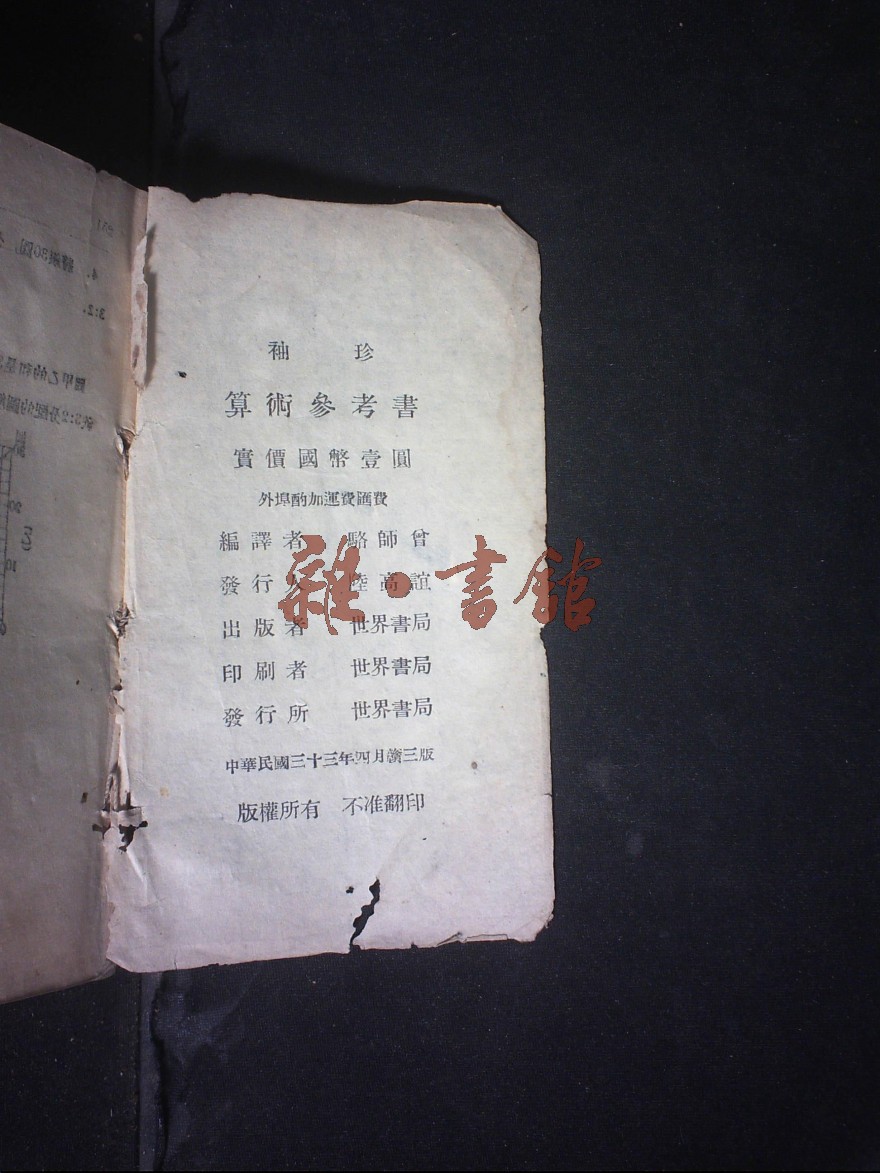 袖珍
算術參考書
實價國幣壹圓
外埠酌加運費匯費
編譯者 駱師曾
發行人 陸高誼
出版者 世界書局
印刷者 世界書局
發行所 世界書局
中華民國三十三年四月贛三版
版權所有 不准翻印
雜·書館